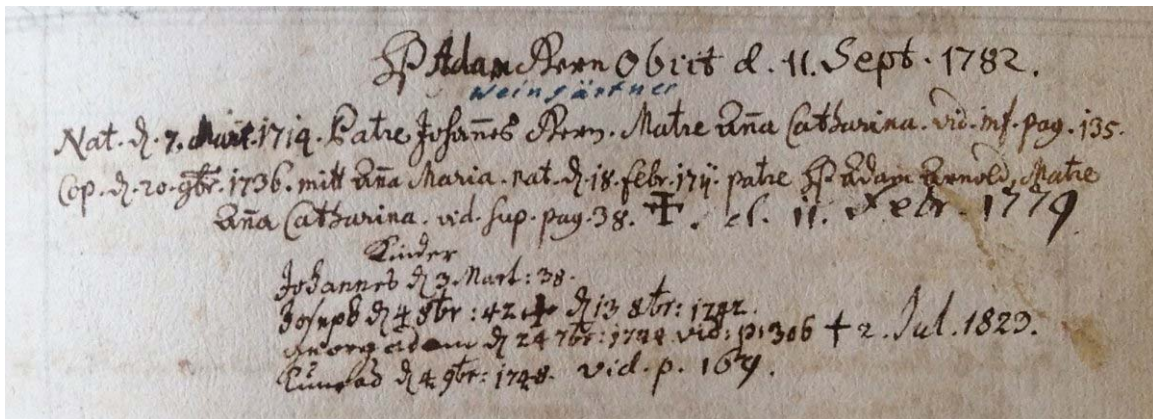 Hß Adam Kern Obiit d. 11. Sept. 1782.
Weingärtner
Nat. d. 7. Mart. 1714. Patre Johañes Kern. Matre Aña Catharina. vid. inf. pag. 135.
Cop. d. 20. 9br. 1736. mitt Aña Maria. nat. d. 18. febr. 1711. patre Hß Adam Arnold. Matre
Aña Catharina. vid. sup. pag. 38. ✝. d. 11. Febr. 1779
Kinder
Johannes d. 3. Mart: 38.
Joseph d. 4 8br: 42 ✝ d. 13 8br: 1742.
Georg adam d. 24 7br: 1744 vid: p: 306 ✝ 2. Jul. 1823.
Cunrad d. 4. 9br: 1748. vid. p. 169.